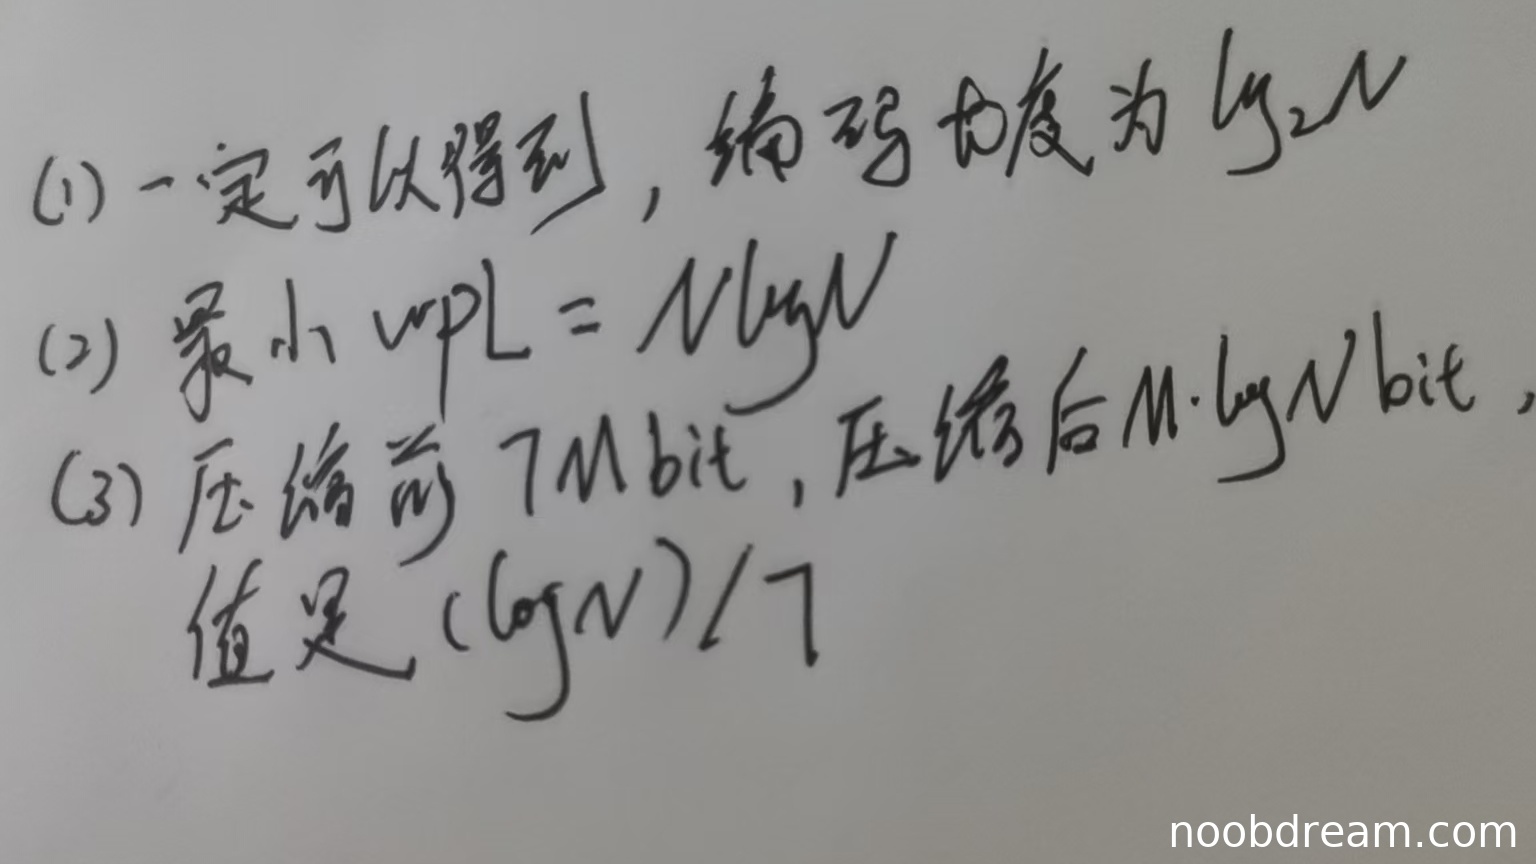 (1) 一定可以得到，编码长度为 log₂N
(2) 最小 WPL = NlogN
(3) 压缩前 7M bit，压缩后 M·logN bit，
值是 (logN)/7
noobdream.com